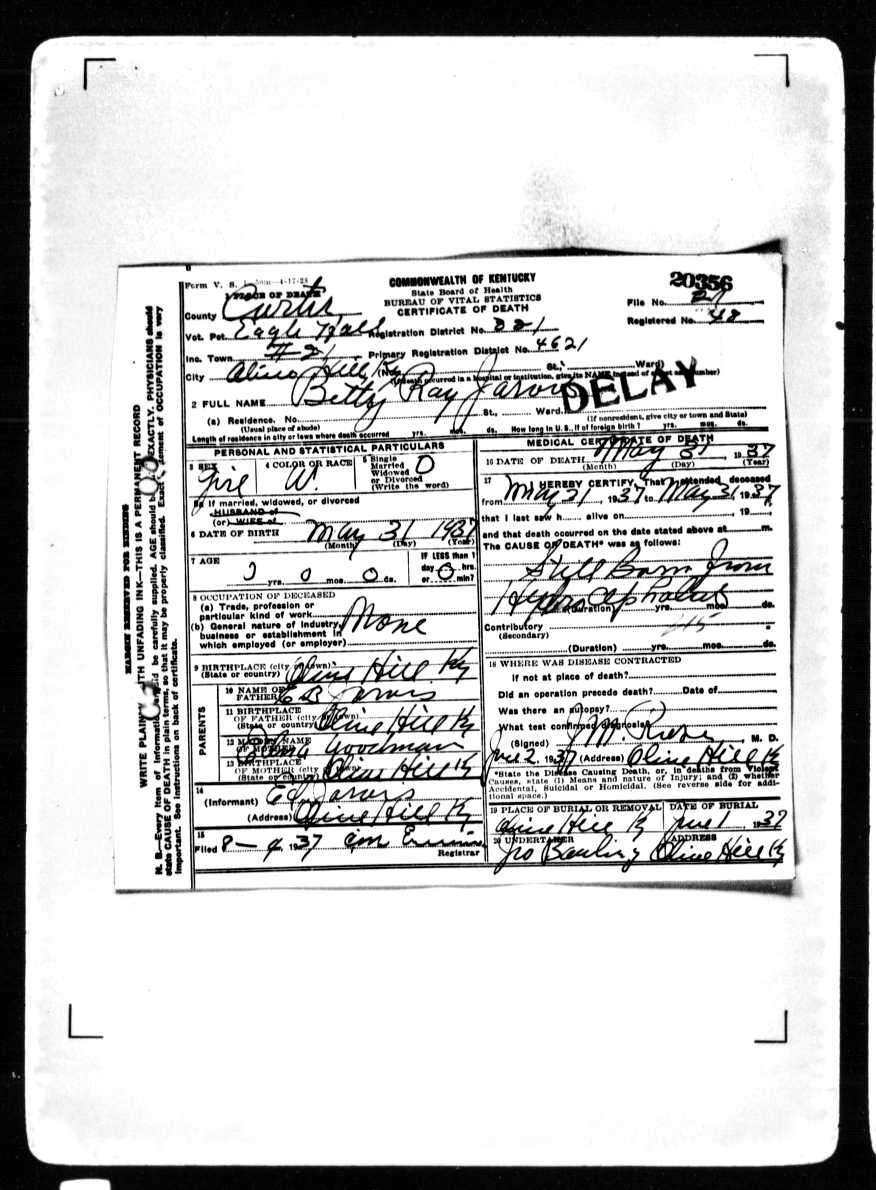 Form V. S.
PLACE OF DEATH
COMMONWEALTH OF KENTUCKY
State Board of Health
BUREAU OF VITAL STATISTICS
CERTIFICATE OF DEATH
20356
File No.
Registered No. 48
County
Vot. Pct. Eagle Registration District No. 221
Inc. Town #21 Primary Registration District No. 4621
City Olive Hill Ky (No. St.; Ward)
(If death occurred in a hospital or institution, give its NAME instead of street and number)
DELAY
2 FULL NAME Betty Ray Jarvis
(a) Residence. No. St., Ward.
(Usual place of abode) (If nonresident, give city or town and State)
Length of residence in city or town where death occurred yrs. mos. ds. How long in U. S., if of foreign birth? yrs. mos. ds.
PERSONAL AND STATISTICAL PARTICULARS
3 SEX
4 COLOR OR RACE W.
5 Single
Married
Widowed
or Divorced
(Write the word) O
5a If married, widowed, or divorced
HUSBAND of
(or) WIFE of
6 DATE OF BIRTH May 31 1937
(Month) (Day) (Year)
7 AGE
0 yrs. 0 mos. 0 ds.
IF LESS than 1
day 0 hrs.
or min?
8 OCCUPATION OF DECEASED
(a) Trade, profession or
particular kind of work
(b) General nature of industry,
business or establishment in
which employed (or employer)
None
9 BIRTHPLACE (city or town)
(State or country) Olive Hill Ky
PARENTS
10 NAME OF
FATHER E B Jarvis
11 BIRTHPLACE
OF FATHER (city or town)
(State or country) Olive Hill Ky
12 MAIDEN NAME
OF MOTHER Goodman
13 BIRTHPLACE
OF MOTHER (city or town)
(State or country) Olive Hill Ky
14
(Informant) Ed Jarvis
(Address) Olive Hill Ky
15
Filed 8-4 1937
Registrar
MEDICAL CERTIFICATE OF DEATH
16 DATE OF DEATH May 31 1937
(Month) (Day) (Year)
17 I HEREBY CERTIFY, That I attended, deceased
from May 31, 1937 to May 31 1937
that I last saw h alive on , 19
and that death occurred on the date stated above at m.
The CAUSE OF DEATH* was as follows:
Still Born from
(Duration) yrs. mos. ds.
Contributory
(Secondary)
(Duration) yrs. mos. ds.
18 WHERE WAS DISEASE CONTRACTED
If not at place of death?
Did an operation precede death? Date of
Was there an autopsy?
What test confirmed diagnosis?
(Signed) M. D.
June 2 1937 (Address) Olive Hill Ky
*State the Disease Causing Death, or, in deaths from Violent
Causes, state (1) Means and nature of Injury; and (2) whether
Accidental, Suicidal or Homicidal. (See reverse side for additional space.)
19 PLACE OF BURIAL OR REMOVAL
Olive Hill Ky
DATE OF BURIAL
June 1, 1937
20 UNDERTAKER
ADDRESS
Olive Hill Ky
MARGIN RESERVED FOR BINDING
WRITE PLAINLY WITH UNFADING INK—THIS IS A PERMANENT RECORD
N. B.—Every item of information should be carefully supplied. AGE should be EXACTLY. PHYSICIANS should
state CAUSE OF DEATH in plain terms, so that it may be properly classified. Exact statement of OCCUPATION is very
important. See instructions on back of certificate.